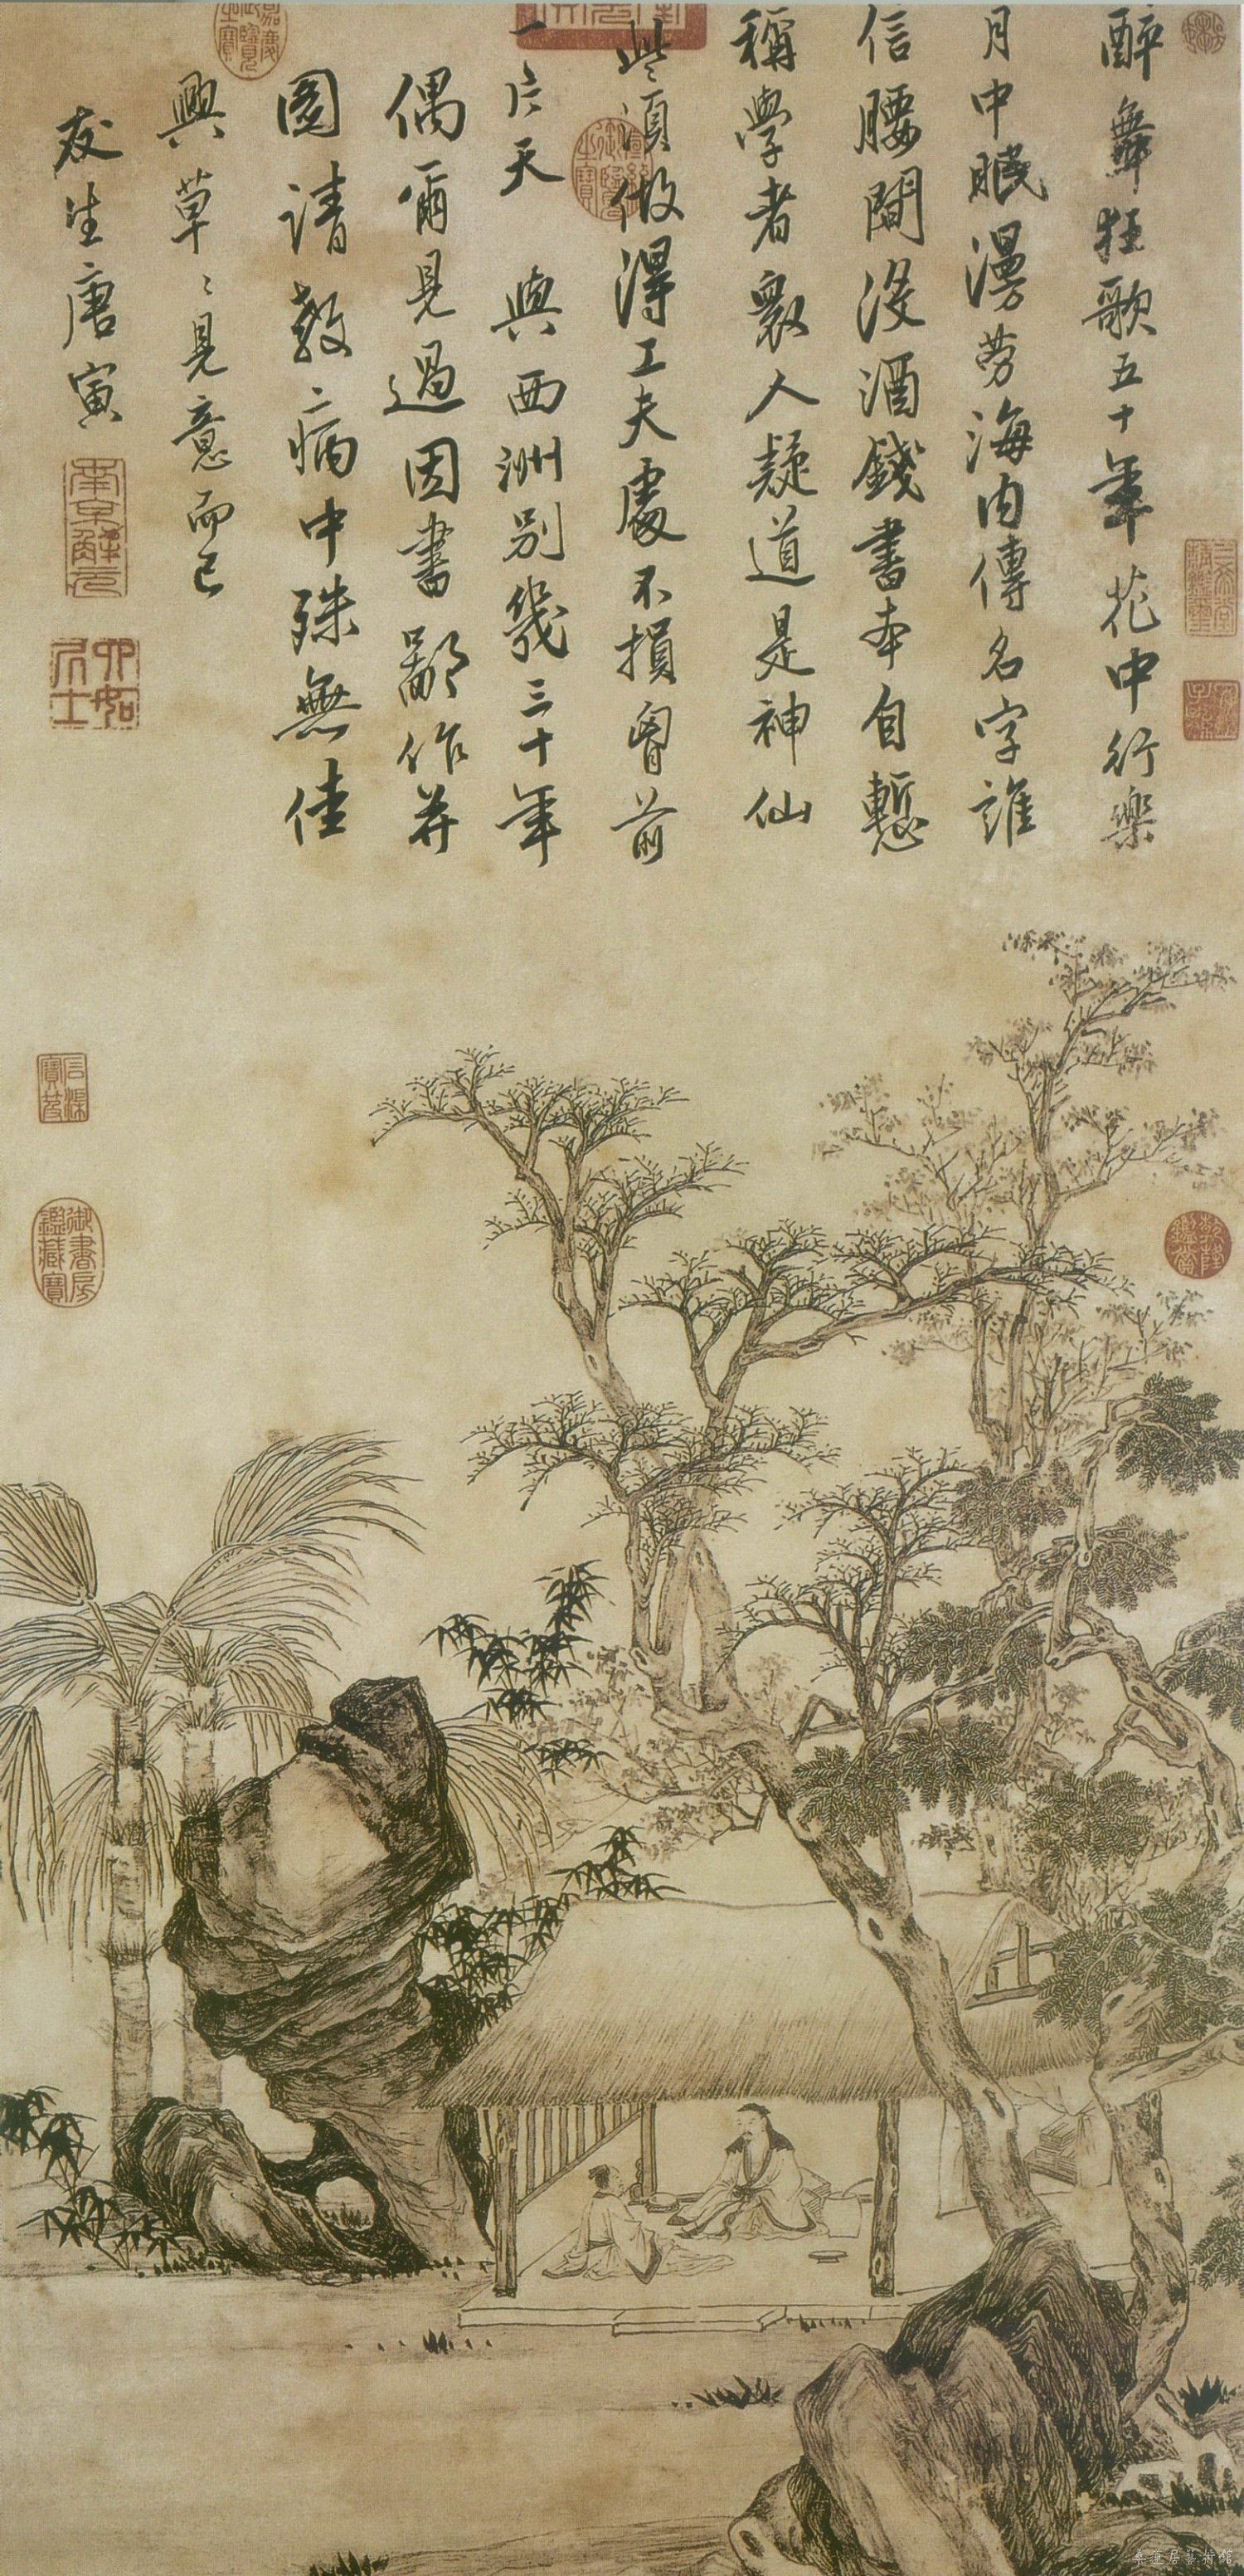 醉舞狂歌五十年花中行樂
月中眠漫勞海内傳名字誰
信腰間沒酒錢書本自慙
稱學者衆人疑道是神仙
些須做得工夫處不損胷前
一片天 與西洲別幾三十年
偶爾見過因書鄙作并
圖請教病中殊無佳
興草〻見意而已
友生唐寅
南京解元
六如居士
嘉慶御覽之寶
宣統御覽之寶
三希堂精鑑璽
宜子孫
石渠寶笈
御書房鑑藏寶
乾隆鑑賞
桑蓮居藝術館